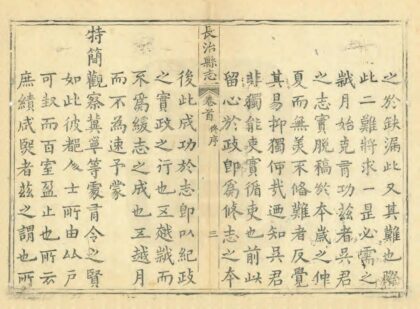 之於缺漏此又其難也際
此二難將求一是必需之
歲月始克功茲者吳君
之志實脫稿於本歲之仲
夏而無美不備難者反覺
其易抑獨何哉迺知吳君
非獨能吏實循吏也前此
留心於政即為修志之本
長治縣志 卷首 序 三
後此成功於志即以紀政
之實政之行也五越歲而
不為緩志之成也五越月
而不為速予蒙
特簡觀察冀寧等處令之賢
如此彼都人士所由比戶
可封而百室盈止也所云
庶績咸熙者茲之謂也所